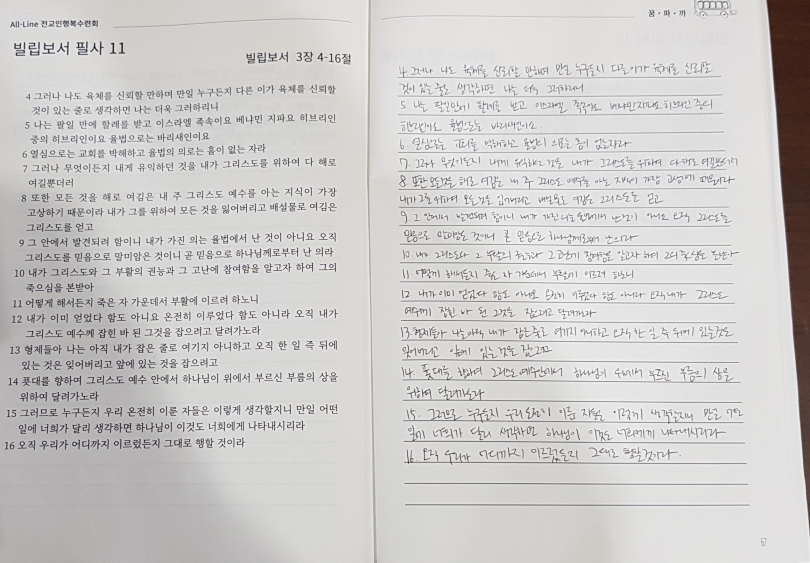 All-Line 전교인행복수련회
빌립보서 필사 11
빌립보서 3장 4-16절
4 그러나 나도 육체를 신뢰할 만하며 만일 누구든지 다른 이가 육체를 신뢰할
것이 있는 줄로 생각하면 나는 더욱 그러하리니
5 나는 팔일 만에 할례를 받고 이스라엘 족속이요 베냐민 지파요 히브리인
중의 히브리인이요 율법으로는 바리새인이요
6 열심으로는 교회를 박해하고 율법의 의로는 흠이 없는 자라
7 그러나 무엇이든지 내게 유익하던 것을 내가 그리스도를 위하여 다 해로
여길뿐더러
8 또한 모든 것을 해로 여김은 내 주 그리스도 예수를 아는 지식이 가장
고상하기 때문이라 내가 그를 위하여 모든 것을 잃어버리고 배설물로 여김은
그리스도를 얻고
9 그 안에서 발견되려 함이니 내가 가진 의는 율법에서 난 것이 아니요 오직
그리스도를 믿음으로 말미암은 것이니 곧 믿음으로 하나님께로부터 난 의라
10 내가 그리스도와 그 부활의 권능과 그 고난에 참여함을 알고자 하여 그의
죽으심을 본받아
11 어떻게 해서든지 죽은 자 가운데서 부활에 이르려 하노니
12 내가 이미 얻었다 함도 아니요 온전히 이루었다 함도 아니라 오직 내가
그리스도 예수께 잡힌 바 된 그것을 잡으려고 달려가노라
13 형제들아 나는 아직 내가 잡은 줄로 여기지 아니하고 오직 한 일 즉 뒤에
있는 것은 잊어버리고 앞에 있는 것을 잡으려고
14 푯대를 향하여 그리스도 예수 안에서 하나님이 위에서 부르신 부름의 상을
위하여 달려가노라
15 그러므로 누구든지 우리 온전히 이룬 자들은 이렇게 생각할지니 만일 어떤
일에 너희가 달리 생각하면 하나님이 이것도 너희에게 나타내시리라
16 오직 우리가 어디까지 이르렀든지 그대로 행할 것이라
꿈·파·까
4 그러나 나도 육체를 신뢰할 만하며 만일 누구든지 다른이가 육체를 신뢰할
것이 있는 줄로 생각하면 나는 더욱 그러하리니
5 나는 팔일만에 할례를 받고 이스라엘 족속이요 베냐민지파요 히브리인 중의
히브리인이요 율법으로는 바리새인이요
6 열심으로는 교회를 박해하고 율법의 의로는 흠이 없는자라
7 그러나 무엇이든지 내게 유익하던 것을 내가 그리스도를 위하여 다 해로 여길뿐더러
8 또한 모든것을 해로 여김은 내 주 그리스도 예수를 아는 지식이 가장 고상하기 때문이라
내가 그를 위하여 모든 것을 잃어버리고 배설물로 여김은 그리스도를 얻고
9 그 안에서 발견되려 함이니 내가 가진 의는 율법에서 난 것이 아니요 오직 그리스도를
믿음으로 말미암은 것이니 곧 믿음으로 하나님께로부터 난 의라
10 내가 그리스도와 그 부활의 권능과 그 고난에 참여함을 알고자 하여 그의 죽으심을 본받아
11 어떻게 해서든지 죽은 자 가운데서 부활에 이르려 하노니
12 내가 이미 얻었다 함도 아니요 온전히 이루었다 함도 아니라 오직 내가 그리스도
예수께 잡힌 바 된 그것을 잡으려고 달려가노라
13 형제들아 나는 아직 내가 잡은줄로 여기지 아니하고 오직 한 일 즉 뒤에 있는것은
잊어버리고 앞에 있는 것을 잡으려고
14. 푯대를 향하여 그리스도 예수안에서 하나님이 위에서 부르신 부름의 상을
위하여 달려가노라
15. 그러므로 누구든지 우리 온전히 이룬 자들은 이렇게 생각할지니 만일 어떤
일에 너희가 달리 생각하면 하나님이 이것도 너희에게 나타내시리라
16. 오직 우리가 어디까지 이르렀든지 그대로 행할것이라.